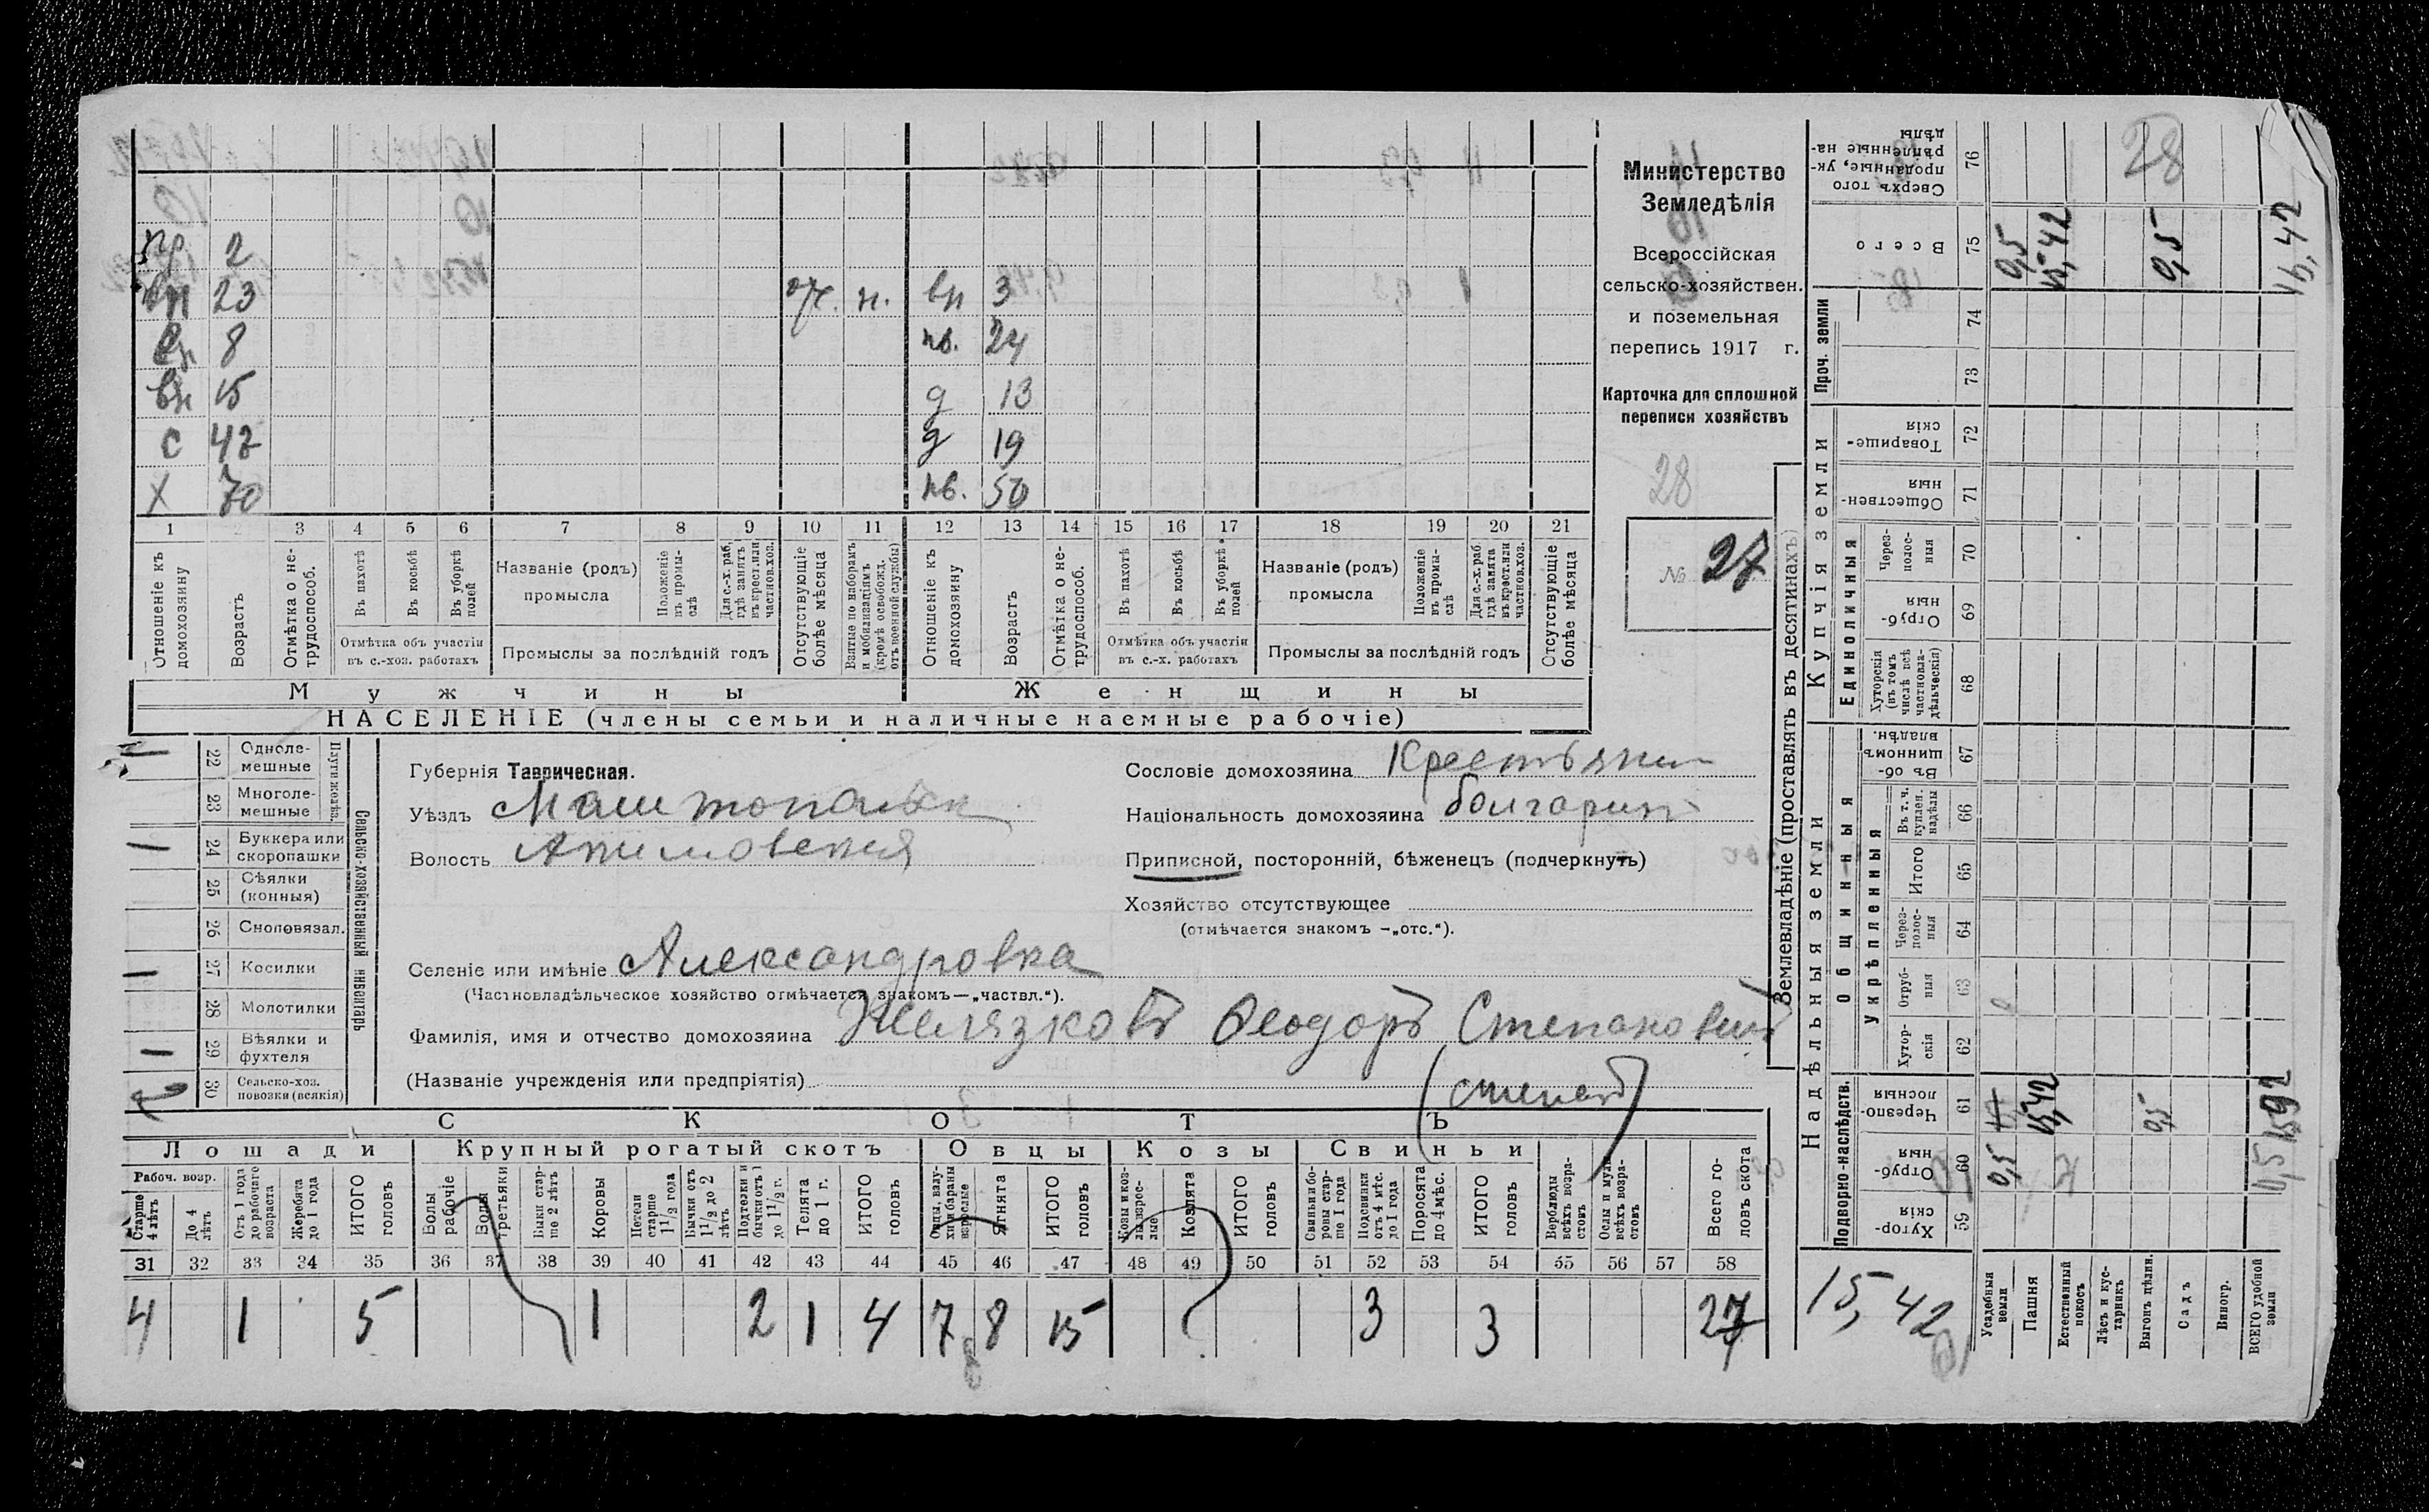 Министерство
Земледѣлія
Всероссійская
сельско-хозяйствен.
и поземельная
перепись 1917 г.
Карточка для сплошной
переписи хозяйствъ
28
№ 27
пр 2
вн 23 от. н. вн 3
вн 8 нв. 24
вн 15 д 13
с 42 д 19
х 70 нв. 50
1 3 4 5 6 7 8 9 10 11 12 13 14 15 16 17 18 19 20 21
Отношеніе къ домохозяину
Возрастъ
Отмѣтка о не-трудоспособ.
Въ пахотѣ
Въ косьбѣ
Въ уборкѣ полей
Отмѣтка объ участіи въ с.-хоз. работахъ
Названіе (родъ) промысла
Положеніе въ промы-слѣ
Для с.-х. раб. гдѣ занятъ въ крест. или частнов. хоз.
Промыслы за послѣдній годъ
Отсутствующіе болѣе мѣсяца
Взятые по наборамъ и мобилизаціямъ (кромѣ освобожд. отъ военной службы)
Отношеніе къ домохозяину
Возрастъ
Отмѣтка о не-трудоспособ.
Въ пахотѣ
Въ косьбѣ
Въ уборкѣ полей
Отмѣтка объ участіи въ с.-х. работахъ
Названіе (родъ) промысла
Положеніе въ промы-слѣ
Для с.-х. раб. гдѣ занята въ крест. или частнов. хоз.
Промыслы за послѣдній годъ
Отсутствующіе болѣе мѣсяца
Мужчины Женщины
НАСЕЛЕНІЕ (члены семьи и наличные наемные рабочіе)
Сельско-хозяйственный инвентарь
Плуги желѣз.
22 Одноле-мешные
23 Многоле-мешные
24 Буккера или скоропашки
25 Сѣялки (конныя)
26 Сноповязал.
27 Косилки
28 Молотилки
29 Вѣялки и фухтеля
30 Сельско-хоз. повозки (всякія)
Губернія Таврическая.
Уѣздъ
Волость Акимовская
Селеніе или имѣніе Александровка
(Частновладѣльческое хозяйство отмѣчается знакомъ—„частвл.“).
Фамилія, имя и отчество домохозяина Желязковъ Ѳеодоръ Степановичъ
(Названіе учрежденія или предпріятія)
(Степанъ)
Сословіе домохозяина Крестьянин
Національность домохозяина болгаринъ
Приписной, посторонній, бѣженецъ (подчеркнуть)
Хозяйство отсутствующее
(отмѣчается знакомъ —„отс.“).
СКОТЪ
Лошади Крупный рогатый скотъ Овцы Козы Свиньи
Рабоч. возр.
Старше 4 лѣтъ
До 4 лѣтъ
Отъ 1 года до рабочаго возраста
Жеребята до 1 года
ИТОГО головъ
Волы рабочіе
Волы третьяки
Быки стар-ше 2 лѣтъ
Коровы
Нетели старше 1 1/2 года
Бычки отъ 1 1/2 до 2 лѣтъ
Подтелки и бычки отъ 1 до 1 1/2 г.
Телята до 1 г.
ИТОГО головъ
Овцы, валу-хи и бараны взрослые
Ягнята
ИТОГО головъ
Козы и коз-лы взрос-лые
Козлята
ИТОГО головъ
Свиньи и бо-ровы стар-ше 1 года
Подсвинки отъ 4 мѣс. до 1 года
Поросята до 4 мѣс.
ИТОГО головъ
Верблюды всѣхъ возра-стовъ
Ослы и мулы всѣхъ возра-стовъ
Всего го-ловъ скота
31 32 33 34 35 36 37 38 39 40 41 42 43 44 45 46 47 48 49 50 51 52 53 54 55 56 57 58
4 1 5 1 2 1 4 7 8 15 3 3 27
Землевладѣніе (проставлять въ десятинахъ)
Надѣльныя земли Купчія земли Проч. земли
Подворно-наслѣдств. Общинныя Единоличныя
Укрѣпленныя
59 Хутор-скія
60 Отруб-ныя
61 Черезпо-лосныя
62 Хутор-скія
63 Отруб-ныя
64 Через-полос-ныя
65 Итого
66 Въ т. ч. куплен. надѣлы
67 Въ об-щинномъ владѣн.
68 Хуторскія (въ томъ числѣ всѣ частновла-дѣльческія)
69 Отруб-ныя
70 Через-полос-ныя
71 Обществен-ныя
72 Товарище-скія
73
74
75 Всего
76 Сверхъ того проданные, ук-рѣпленные на-дѣлы
28
Усадебныя земли 0,5 0,5
Пашня 15,42 15,42
Естественный покосъ
Лѣсъ и кус-тарникъ
Выгонъ цѣлин. 0,5 0,5
Садъ
Виногр.
ВСЕГО удобной земли 0,5 1592 15,42
15,42